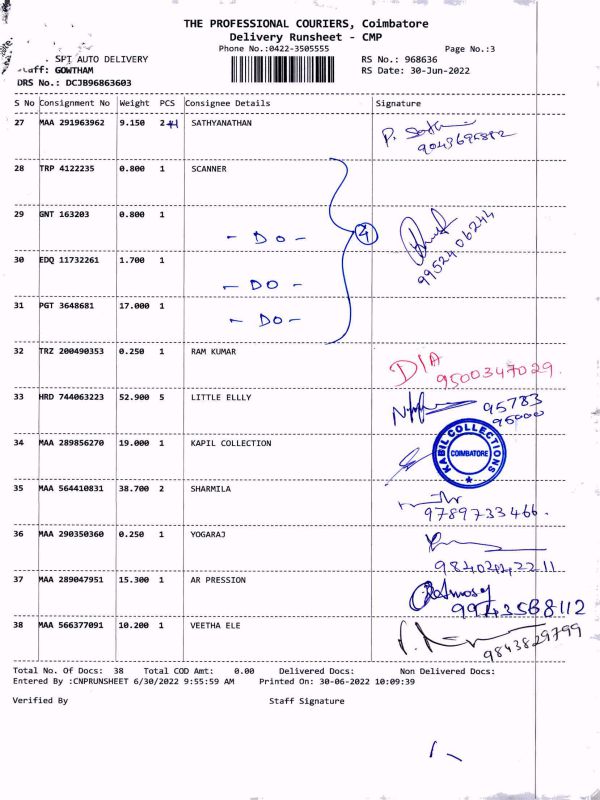 THE PROFESSIONAL COURIERS, Coimbatore
Delivery Runsheet - CMP
Phone No.:0422-3505555 Page No.:3
SPT AUTO DELIVERY RS No.: 968636
GOWTHAM RS Date: 30-Jun-2022
DRS No.: DCJB96863603
S No Consignment No Weight PCS Consignee Details Signature
27 MAA 291963962 9.150 2 SATHYANATHAN
28 TRP 4122235 0.800 1 SCANNER
29 GNT 163203 0.800 1
- DO - 4
9952406244
30 EDQ 11732261 1.700 1
- DO -
31 PGT 3648681 17.000 1
- DO -
32 TRZ 200490353 0.250 1 RAM KUMAR
D/A
9500347029.
33 HRD 744063223 52.900 5 LITTLE ELLLY
95783
95000
34 MAA 289856270 19.000 1 KAPIL COLLECTION
KABIL COLLECTIONS
COIMBATORE
35 MAA 564410831 38.700 2 SHARMILA
9789733466.
36 MAA 290350360 0.250 1 YOGARAJ
37 MAA 289047951 15.300 1 AR PRESSION
9943568112
38 MAA 566377091 10.200 1 VEETHA ELE
9843829799
Total No. Of Docs: 38 Total COD Amt: 0.00 Delivered Docs: Non Delivered Docs:
Entered By :CNPRUNSHEET 6/30/2022 9:55:59 AM Printed On: 30-06-2022 10:09:39
Verified By Staff Signature